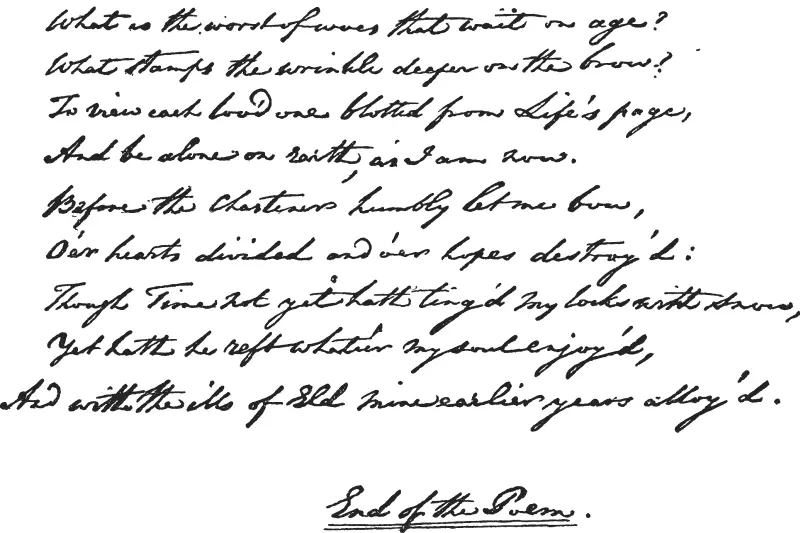 What is the worst of woes that wait on age?
What stamps the wrinkle deeper on the brow?
To view each lov'd one blotted from Life's page,
And be alone on earth, as I am now.
Before the Chastener humbly let me bow,
O'er hearts divided and o'er hopes destroy'd:
Though Time not yet hath ting'd my locks with snow,
Yet hath he reft whate'er my soul enjoy'd,
And with the ills of Eld mine earlier years alloy'd.
End of the Poem.